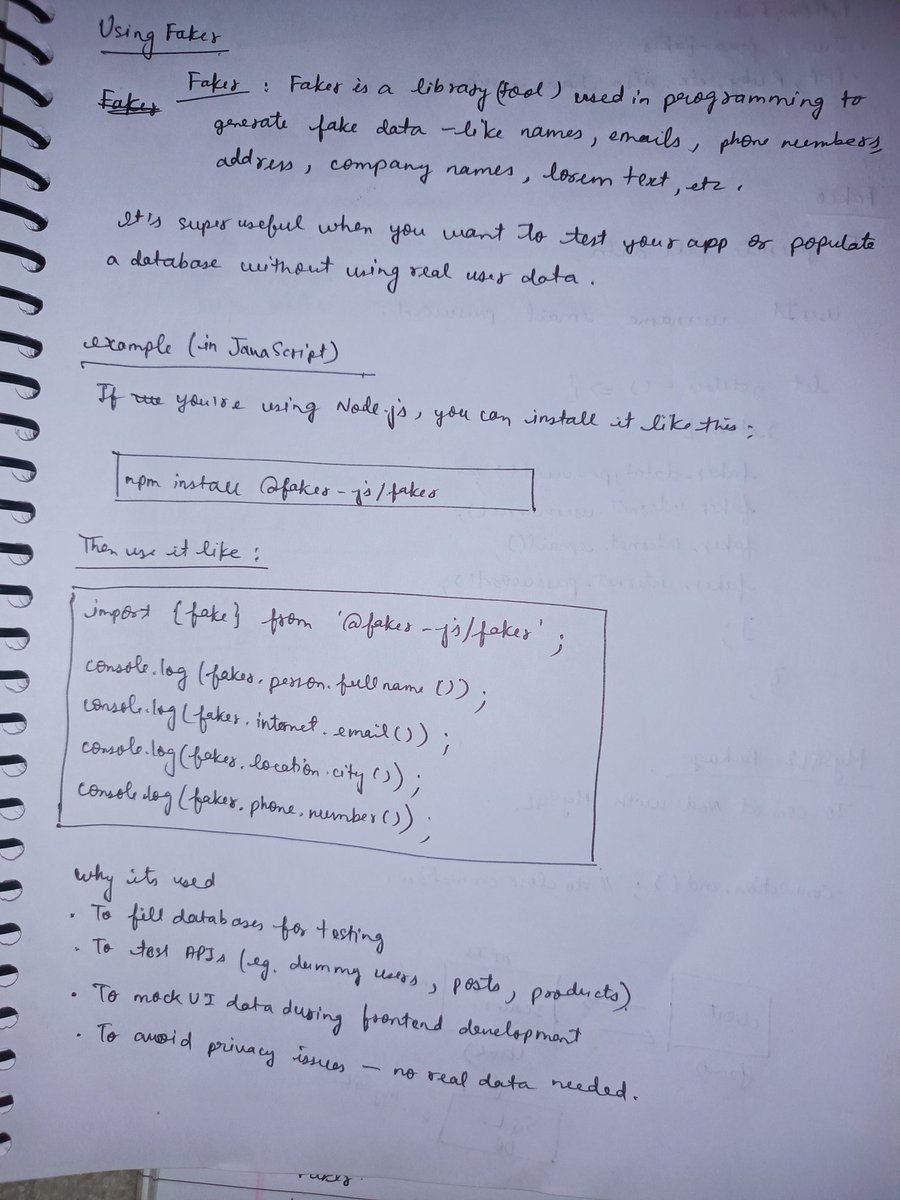 Using Faker
Faker Faker : Faker is a library (tool) used in programming to
generate fake data - like names, emails, phone numbers,
address, company names, lorem text, etc.
It's super useful when you want to test your app or populate
a database without using real user data.
example (in JavaScript)
If you're using Node.js, you can install it like this:
npm install @faker-js/faker
Then use it like:
import {fake} from '@faker-js/faker';
console.log (faker.person.fullname ());
console.log (faker.internet.email());
console.log (faker.location.city());
console.log (faker.phone.number());
Why its used
• To fill databases for testing
• To test APIs (eg. dummy users, posts, products)
• To mock UI data during frontend development
• To avoid privacy issues - no real data needed.